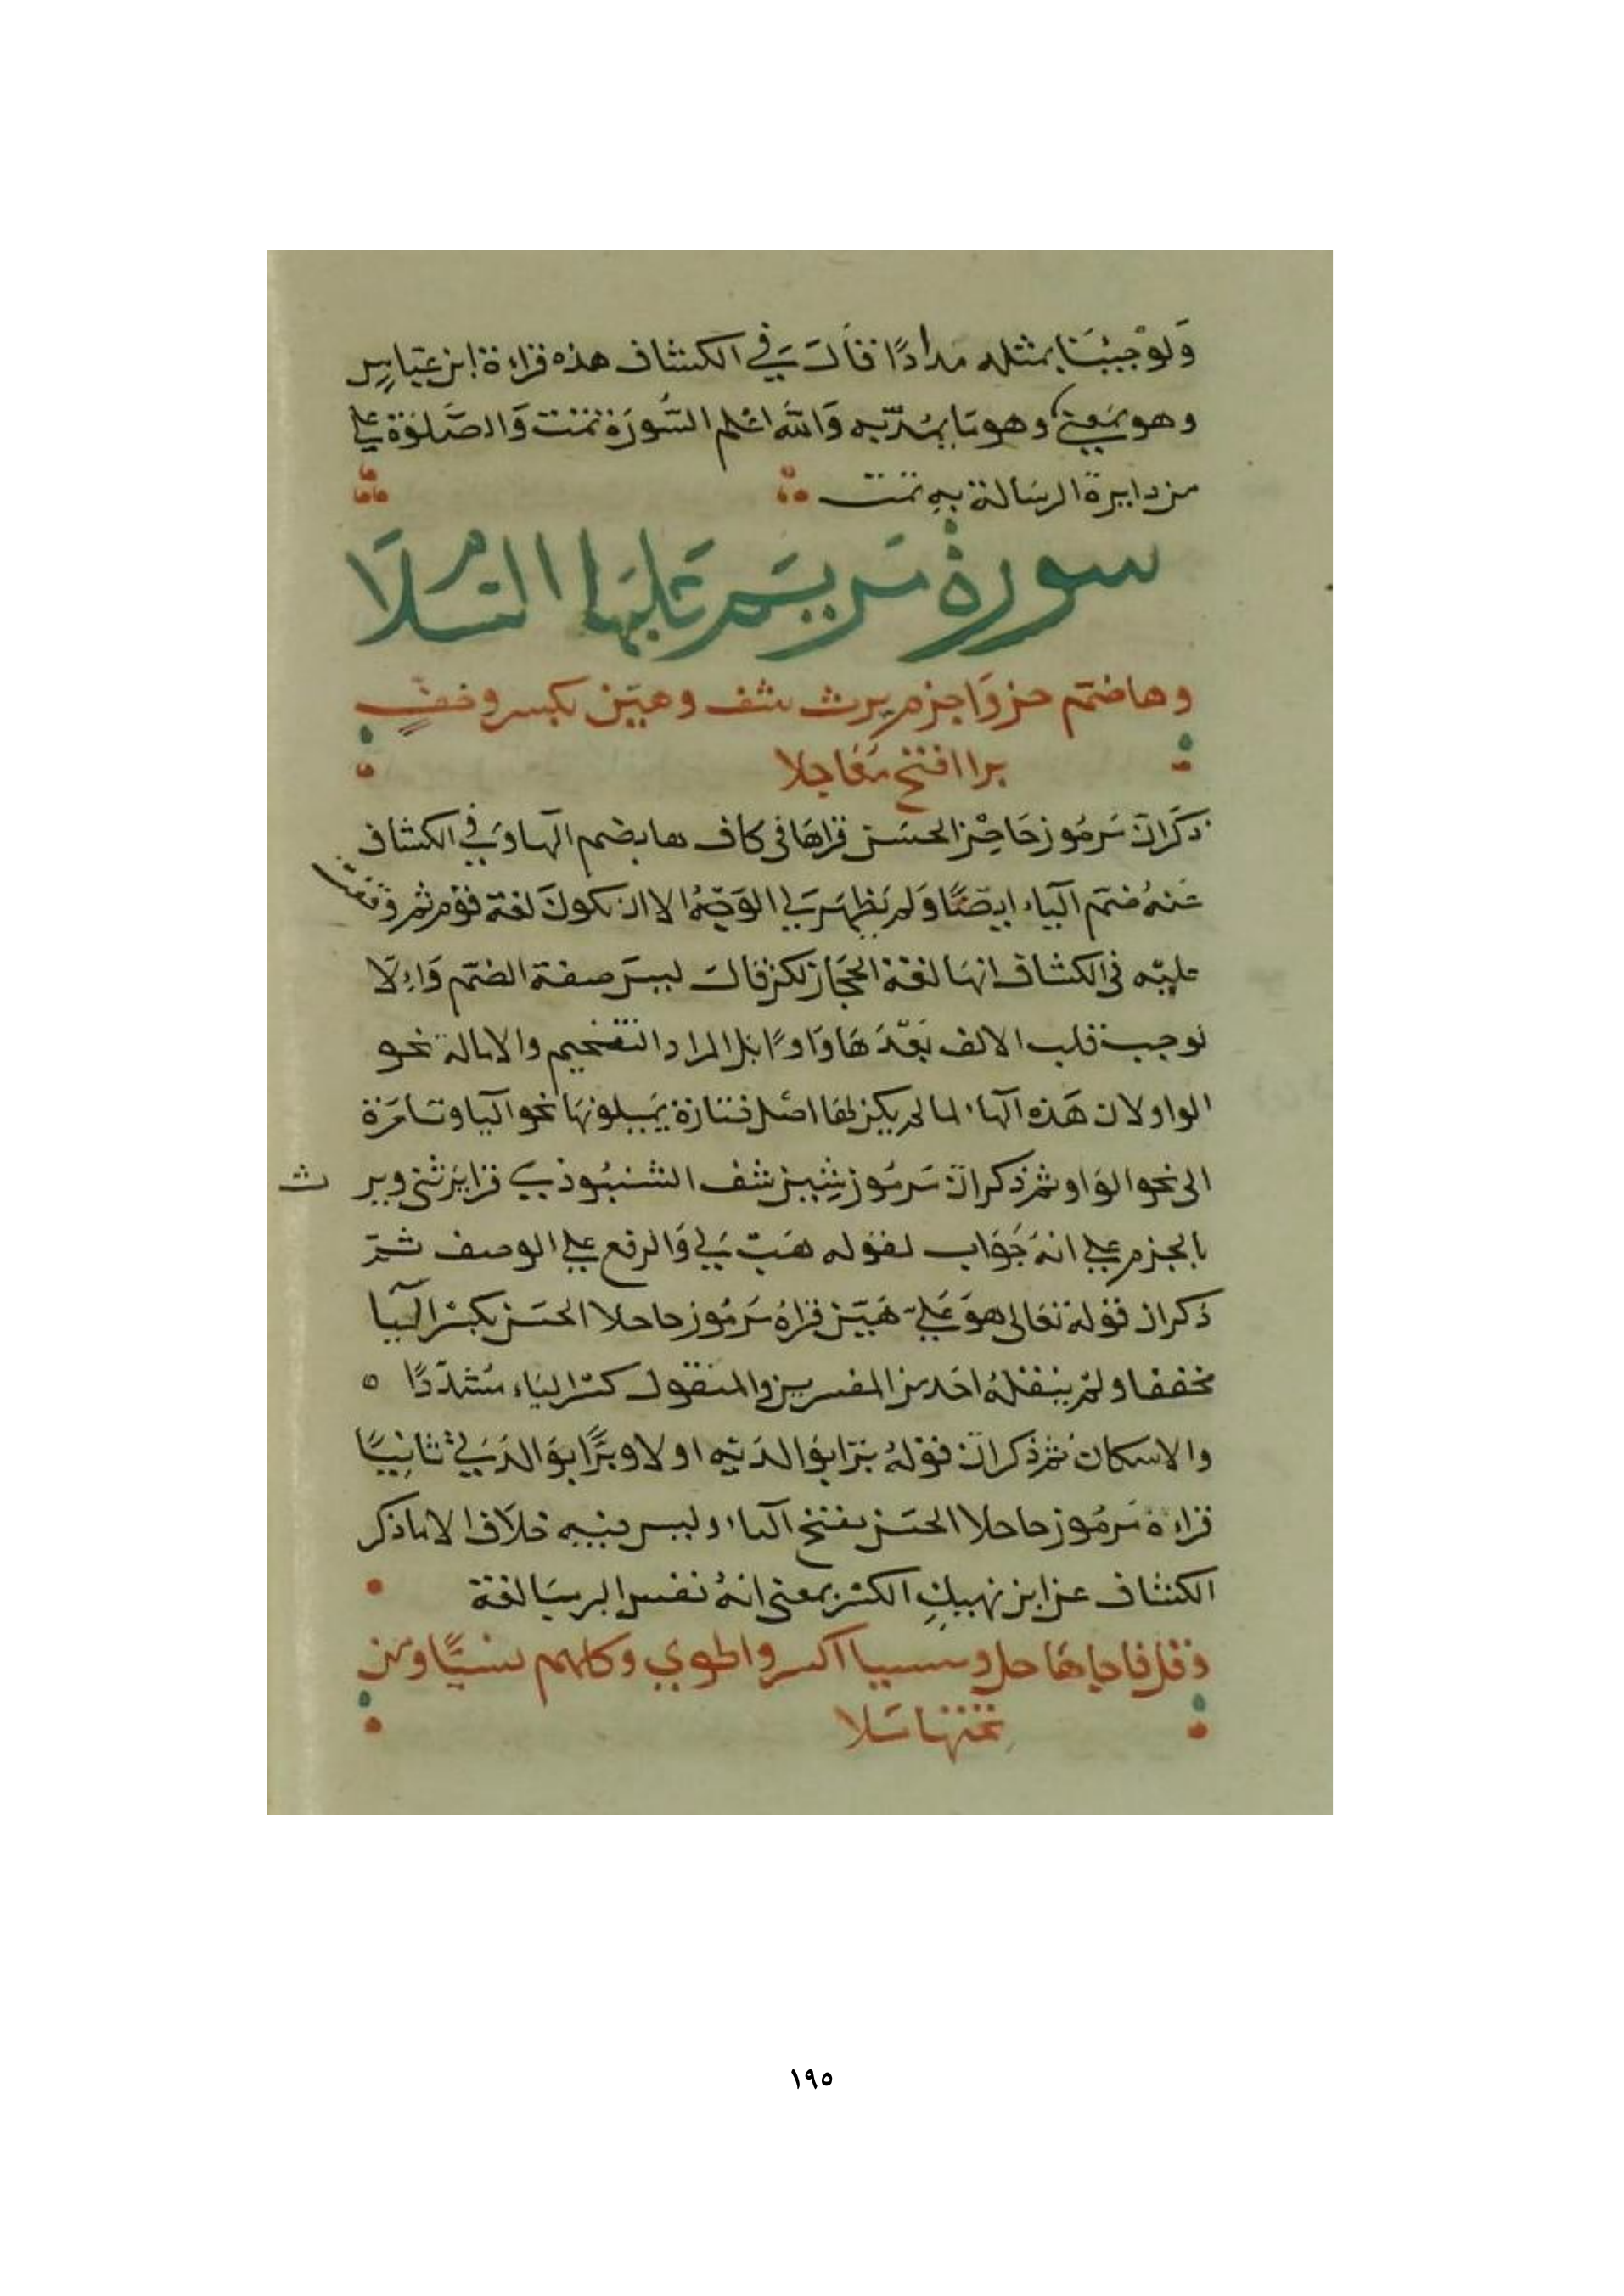 وَلوْجِئْنَا بمثله مدادًا قَالَ في الكشاف هذه قراءة ابن عبّاسٍ
وهو بمعنى وهو مَا يُمدّ به وَالله اعلم السُّورَة تمت وَالصَّلوٰة على
من دايرة الرسَالة به تمت
سورة مَريَم عَليهَا السَّلام
وها ضمّم حز وَاجزم يرث شف وهيّن بكسر وخفّ
برا افتح مَعًا حلا
ذكرَ انّ مَرمُوز حَا حِز الحسَن قراهَا فى كاف ها بضم الهَا وَفي الكشاف
عَنهُ ضمّ اليَاء ايضًا وَلم يَظهَر لي الوَجْهُ الا ان يكونَ لغة قوم ثم وقفت
عليْه فى الكشاف انهَا لغة الحجَاز لكن قال ليسَ صفة الضمّ وَالِا
لوجب قلب الالف بَعْدَهَا وَاوًا بل المراد التفخيم والامالة نحو
الواو لان هَذه الهاء لما لم يكن لها اصل فتارَة يميلونهَا نحو اليا وتارَة
الى نحو الوَاو ثم ذكر انّ مَرمُوز شِين شف الشنبُوذي قرا يَرثنى وير ث
بالجزم على انهُ جَوَاب لقوله هَبْ لي وَالرفع على الوصف ثمّ
ذكر ان قولهُ تعَالى هوَ عَليّ هَيّن قراهُ مَرمُوز حا حلا الحسَن بكسْر اليَا
مخففا ولمْ ينقلهُ احَد من المفسرين والمنقول كسْر اليَاء مُشدّدًا
والاسكان ثم ذكر انّ قولهُ برّا بوَالدَيْه اولا وبرًّا بوَالدَتي ثانِيًا
قراءة مَرمُوز حا حلا الحسَن بفتح البَاء وليس فيه خلاف الا ما ذكر
الكشاف عن ابن نهيكٍ الكسْر بمعنى انهُ نفس البر مبَالغة
وقل فاجاهَا حل ونسيا اكسر واطوي وكلهم نسيًّا ومن
تحتها تلا
١٩٥